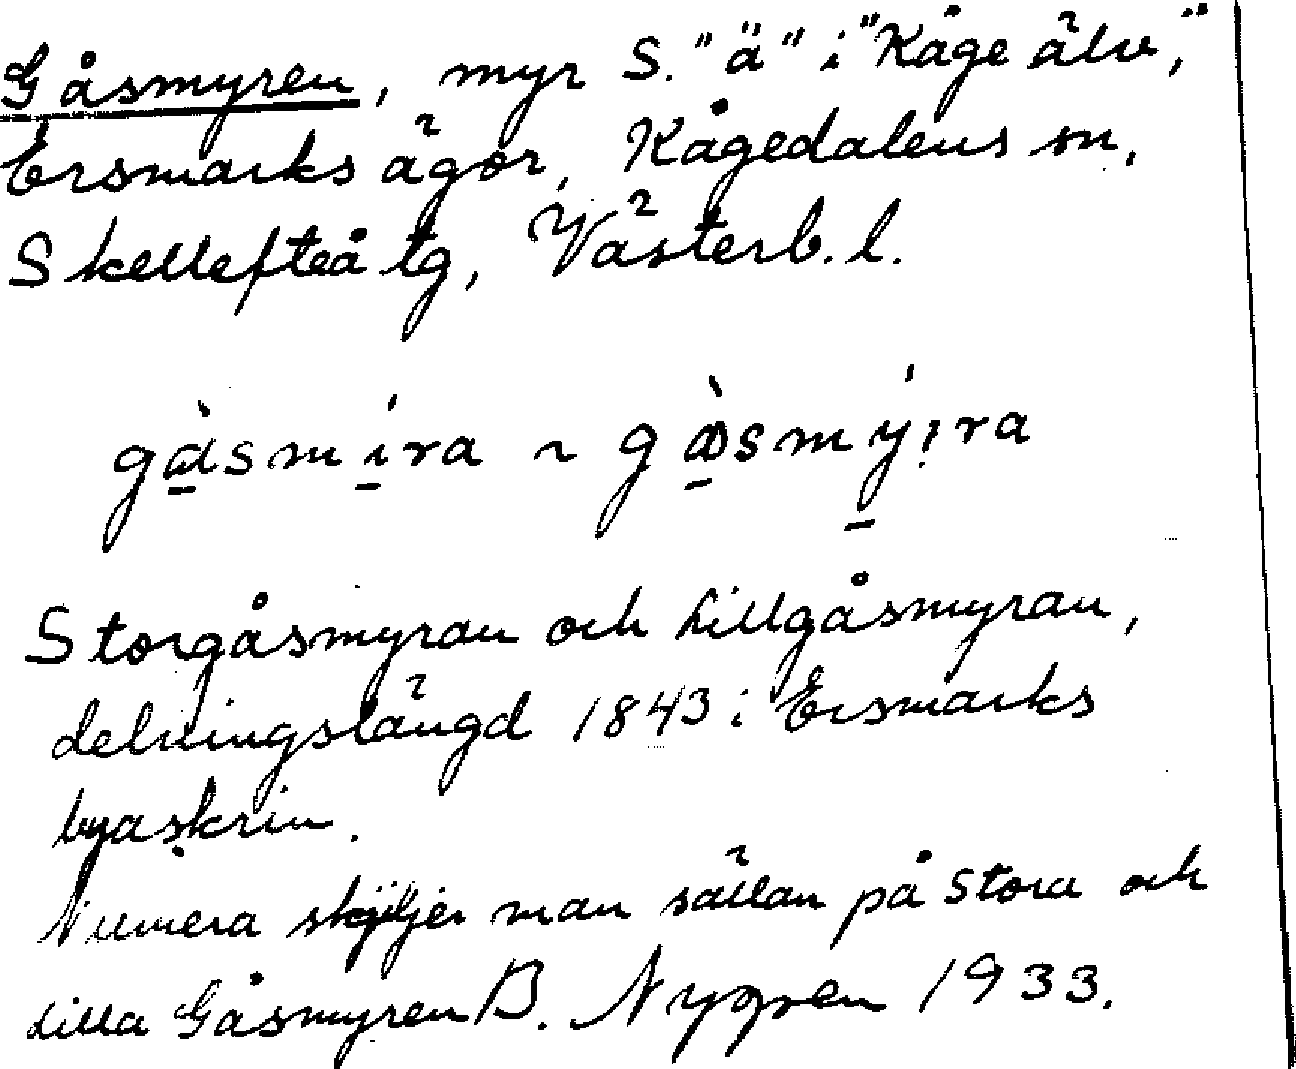 Gåsmyren, myr S. "ä" i "Kåge älv,"
Ersmarks ägor, Kågedalens sn,
Skellefteå tg, Västerb. l.
gàsmíra ~ gòsmýira
Storgåsmyran och Lillgåsmyran,
delningslängd 1843 i Ersmarks
byaskrin.
Numera skiljer man sällan på Stora och
Lilla Gåsmyren B. Nygren 1933.